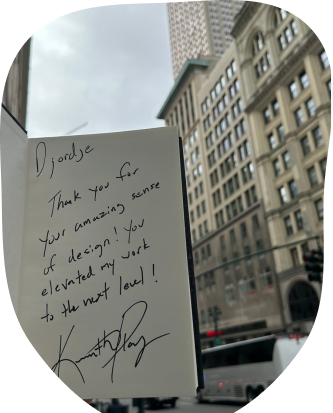 Djordje
Thank you for
your amazing sense
of design! You
elevated my work
to the next level!